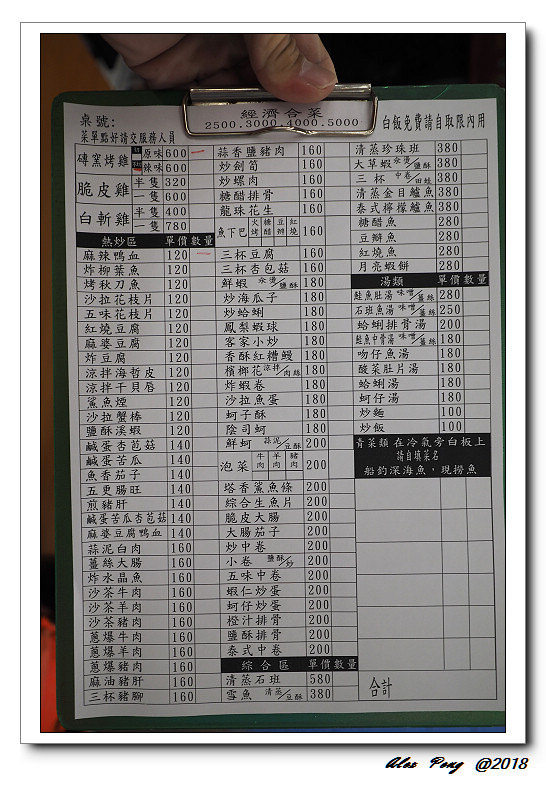 桌號:
經濟合菜
2500.3000.4000.5000
白飯免費請自取限內用
菜單點好請交服務人員
磚窯烤雞 原味 600
辣味 600
脆皮雞 半隻 320
一隻 600
白斬雞 半隻 400
一隻 780
熱炒區 單價 數量
麻辣鴨血 120
炸柳葉魚 120
烤秋刀魚 120
沙拉花枝片 120
五味花枝片 120
紅燒豆腐 120
麻婆豆腐 120
炸豆腐 120
涼拌海哲皮 120
涼拌干貝唇 120
鯊魚煙 120
沙拉蟹棒 120
鹽酥溪蝦 120
鹹蛋杏苞菇 140
鹹蛋苦瓜 140
魚香茄子 140
五更腸旺 140
煎豬肝 140
鹹蛋苦瓜杏苞菇 140
麻婆豆腐鴨血 140
蒜泥白肉 160
薑絲大腸 160
炸水晶魚 160
沙茶牛肉 160
沙茶羊肉 160
沙茶豬肉 160
蔥爆牛肉 160
蔥爆羊肉 160
蔥爆豬肉 160
麻油豬肝 160
三杯豬腳 160
蒜香鹽豬肉 160
炒劍筍 160
炒螺肉 160
糖醋排骨 160
龍珠花生 160
魚下巴 火烤 糖醋 豆瓣 紅燒 160
三杯豆腐 160
三杯杏苞菇 160
鮮蝦 汆燙/鹽酥 180
炒海瓜子 180
炒蛤蜊 180
鳳梨蝦球 180
客家小炒 180
香酥紅糟鰻 180
檳榔花 涼拌/肉絲 180
炸蝦卷 180
沙拉魚蛋 180
蚵子酥 180
陰司蚵 180
鮮蚵 蒜泥/豆酥 200
泡菜 牛肉 羊肉 豬肉 200
塔香鯊魚條 200
綜合生魚片 200
脆皮大腸 200
大腸茄子 200
炒中卷 200
小卷 鹽酥/炒 200
五味中卷 200
蝦仁炒蛋 200
蚵仔炒蛋 200
橙汁排骨 200
鹽酥排骨 200
泰式中卷 200
綜合區 單價 數量
清蒸石班 580
雪魚 清蒸/豆酥 380
清蒸珍珠班 380
大草蝦 汆燙/鹽酥 380
三杯 中卷/田蛙 380
清蒸金目鱸魚 380
泰式檸檬鱸魚 380
糖醋魚 280
豆瓣魚 280
紅燒魚 280
月亮蝦餅 280
湯類
鮭魚肚湯 味噌/薑絲 280
石班魚湯 味噌/薑絲 250
蛤蜊排骨湯 200
鮭魚中骨湯 味噌/薑絲 180
吻仔魚湯 180
酸菜肚片湯 180
蛤蜊湯 180
蚵仔湯 180
炒麵 100
炒飯 100
青菜類在冷氣旁白板上
請自填菜名
船釣深海魚，現撈魚
合計
Alex Pong @2018